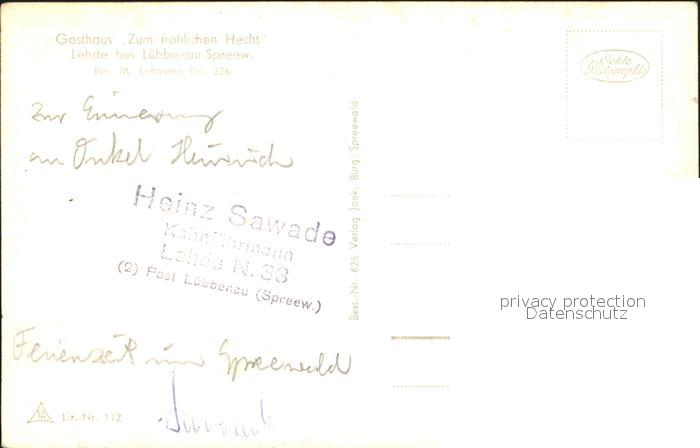 Gasthaus „Zum fröhlichen Hecht"
Lehde bei Lübbenau Spreew.
Bes. M. Lehmann Tel. 226
Echte Photographie
Zur Erinnerung
an Onkel Heinrich
Heinz Sawade
Kahnfährmann
Lehde N. 33
(2) Post Lübbenau (Spreew.)
Best.-Nr. 626 Verlag Jank, Burg/Spreewald
privacy protection
Datenschutz
Ferienzeit im Spreewald
Liz.-Nr. 172